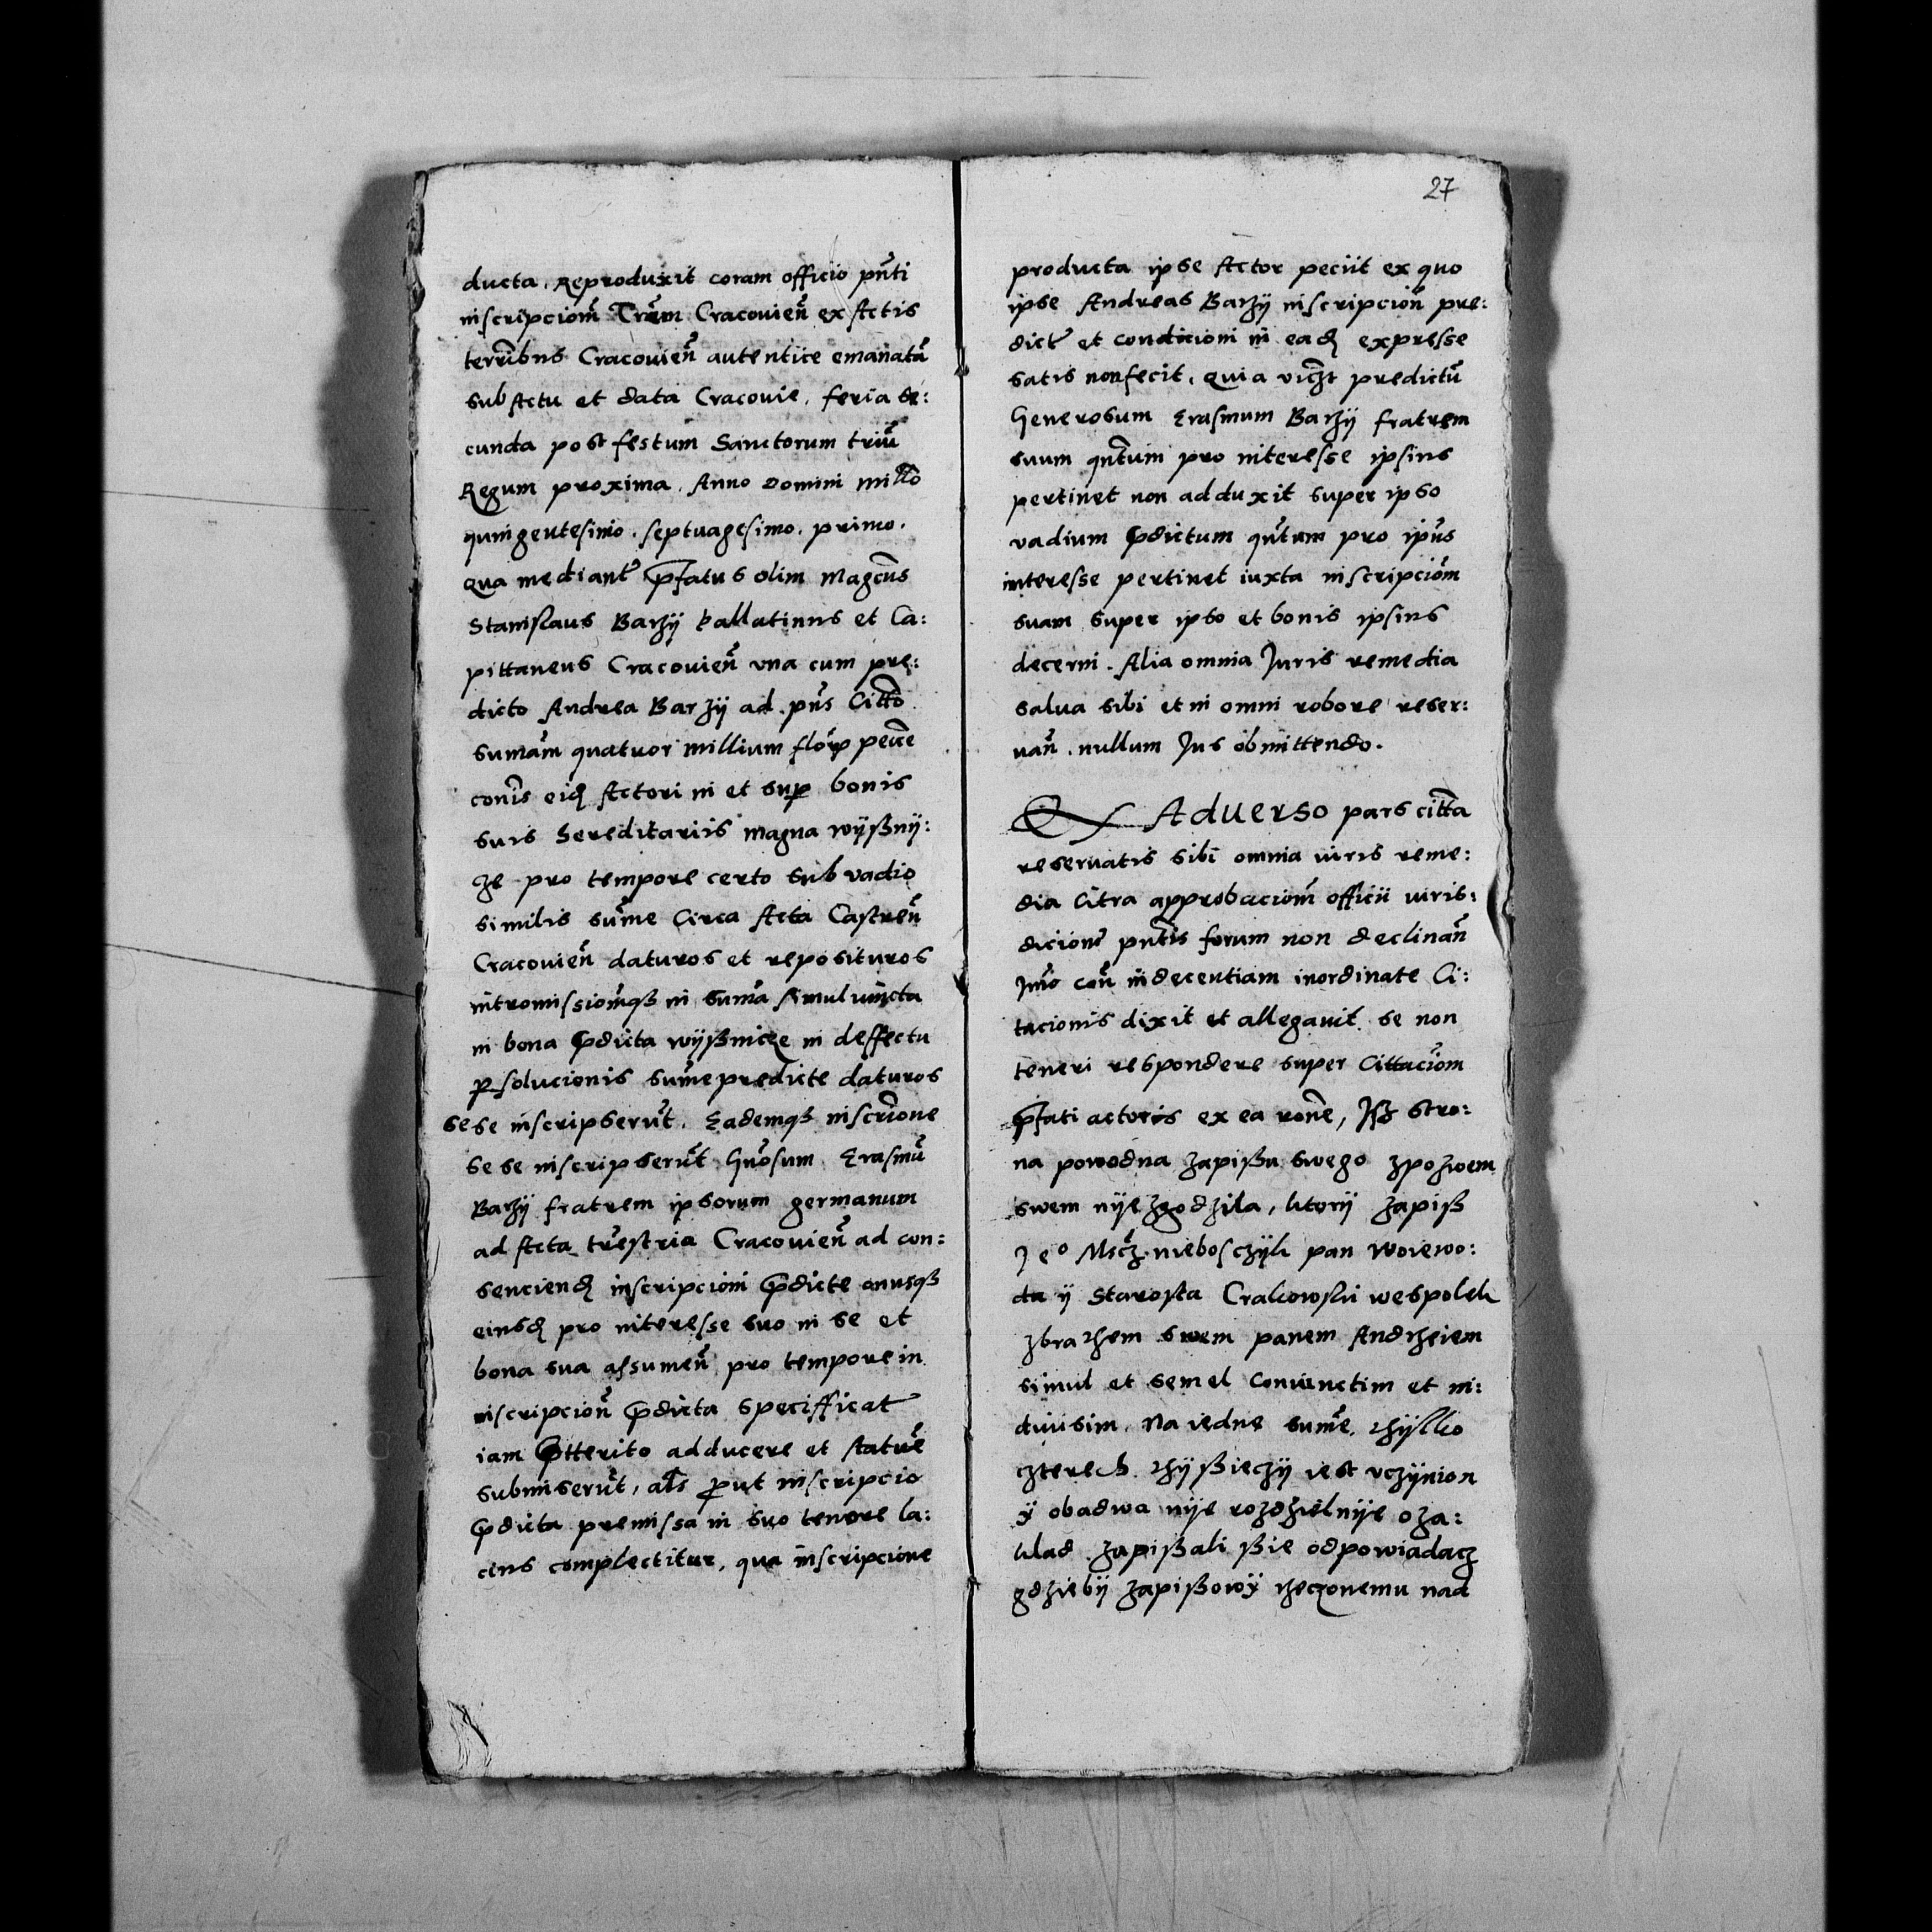 ducta. Reproduxit coram officio pñti
inscripciom̃ Trãm Cracouieñ ex Actis
terreĩbus Cracouieñ autentice emanatã
sub Actu et data Cracouie, feria se:
cunda post festum Sanctorum triũ
Regum proxima. Anno Domini millo
quingentesimo. septuagesimo. primo.
Qua mediant p̃fatus olim Magcus
Stanislaus Barzÿ Pallatinus et Ca:
pittaneus Cracouieñ vna cum pre:
dicto Andrea Barzÿ ad pñs Citto
sumam̃ quatuor millium flor pecce
conis eid Actori in et sup bonis
suis hereditariis magna wÿßnÿ:
ze pro tempore certo sub vadio
similis sum̃e Circa Acta Castreñ
Cracouieñ daturos et reposituros
intromissiom̃qß in suma simul iuncta
in bona p̃dicta wÿßnicze in deffectu
psolucionis sum̃e predicte daturos
se se inscripserut̃. Eademqß inscrione
se se inscripserut̃ Gnosum Erasmũ
Barzÿ fratrem ipsorum germanum
ad Acta tr̃estria Cracouieñ ad con:
senciend inscripcioni p̃dicte onusqß
eiusd pro interesse suo in se et
bona sua assumeñ pro tempore in
inscripcioñ p̃dicta specifficat
iam p̃tterito adducere et statuẽ
submiserut̃, als put inscripcio
p̃dicta premissa in suo tenore la:
cius complectitur, qua inscripcione
27
producta ipse Actor peciit ex quo
ipse Andreas Barzÿ inscripcioñ pre:
dict et condicioni in ead expresse
satis non fecit, quia viczt predictũ
Generosum Erasmum Barzÿ fratrem
suum qntum pro interesse ipsius
pertinet non adduxit super ipso
vadium p̃dictum qntum pro ipũs
interesse pertinet iuxta inscripciom̃
suam super ipso et bonis ipsius
decerni. Alia omnia Juris remedia
salua sibi et in omni robore reser:
uañ. nullum Jus obmittendo.
Ex Aduerso pars citta
reseruatis sibi omnia iuris reme:
dia Citra approbaciom̃ officii iuris:
dicioni pñtis forum non declinañ
Jmo coñ indecentiam inordinate Ci:
tacionis dixit et allegauit se non
teneri respondere super Cittaciom̃
p̃fati actoris ex ea rone, Jsz stro:
na powodna zapißu swego zpozwem
swem nÿe zgodzila, ktorÿ zapiß
Je° Mścz nieboschczÿk pan Woiewo:
da ÿ Starosta Crakowski wespolek
zbrathem swem panem Andrzeiem
simul et semel Coniunctim et in:
diuisim. Na iedne sum̃e, thÿlko
czterech thÿßieczÿ iest vczÿnion
ÿ obadwa nÿe rozdzielnÿe o za:
klad zapißali ßie odpowiadacz
gdziebÿ zapißowÿ rzeczonemu nad